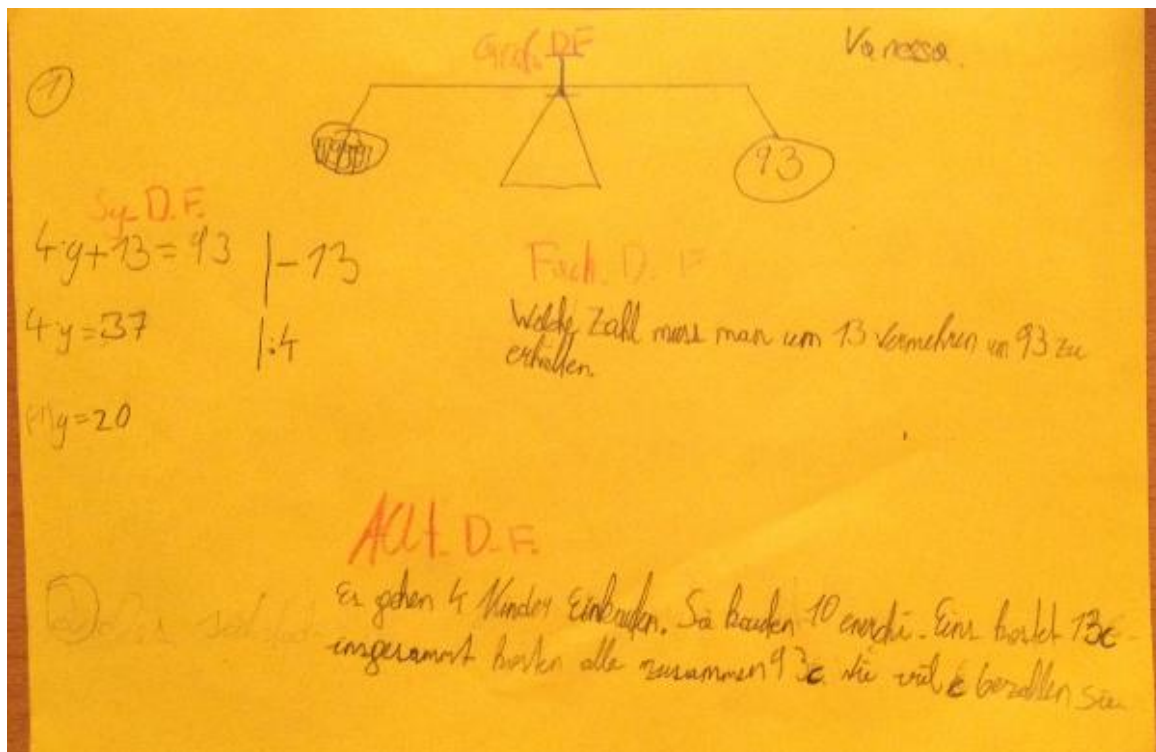 Graf. D.F.
Vanessa
①
93
Sy. D. F.
4·y+13=93 |-13
4·y=37 |:4
y=20
Fach. D. F
Welche Zahl muss man um 13 vermehren um 93 zu
erhalten.
Allt. D. F.
Es gehen 4 Kinder Einkaufen. Sie kaufen 10. Eins kostet 13€
insgesammt kosten alle zusammen 93€ wie viel € bezahlen sie